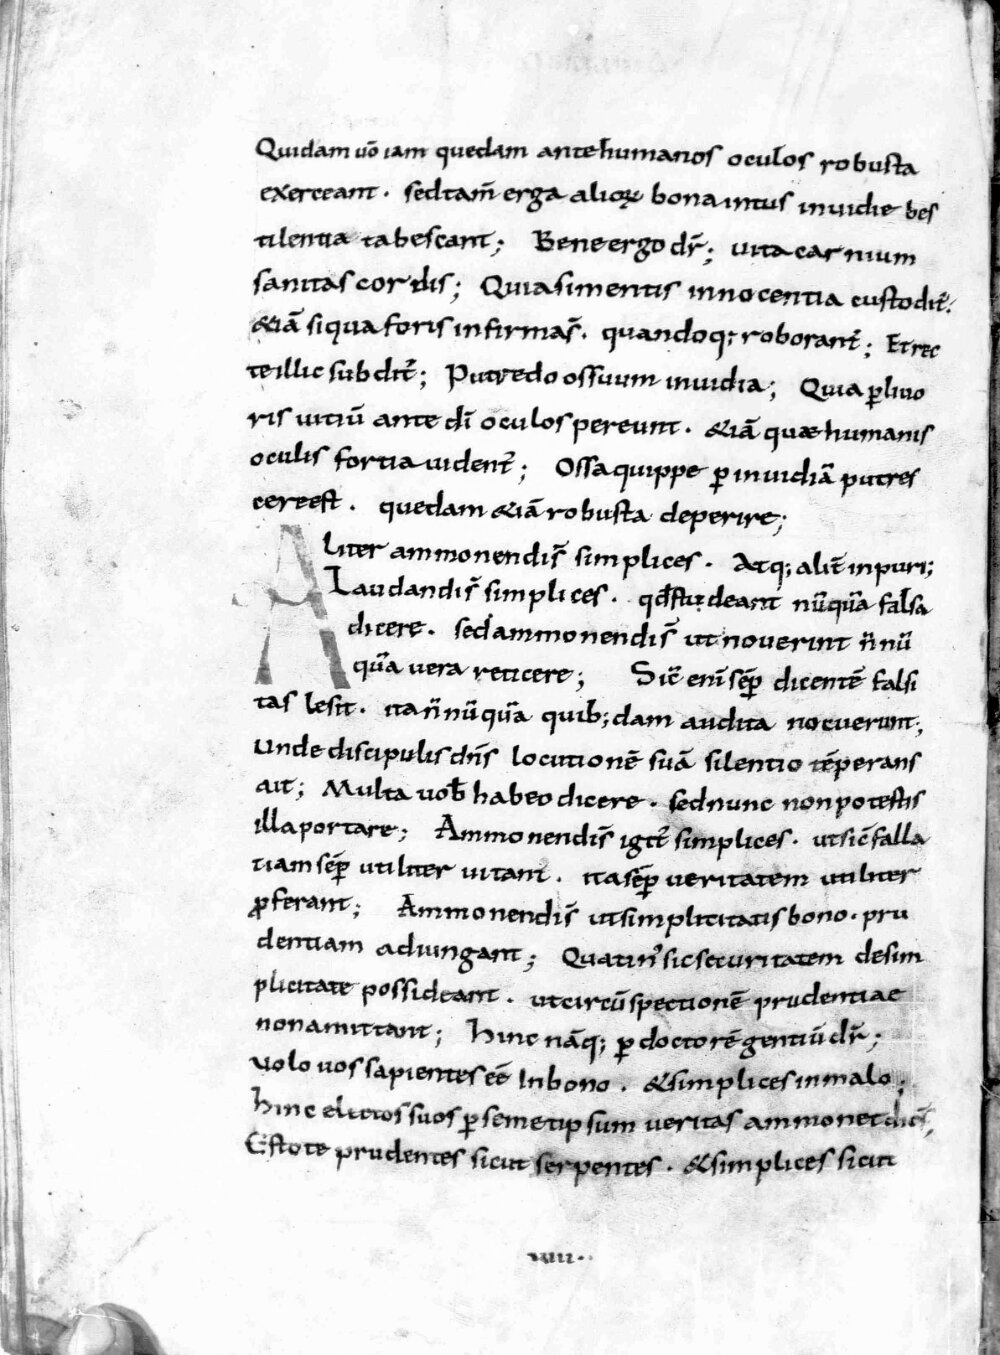 Quidam uo᷈ iam quedam ante humanos oculos robusta
exerceant . sed tam̅ erga alioꝝ bona intus inuidie bes
tilentia tabescant; Bene ergo dr̅; uita carnium
sanitas cordis; Quia si mentis innocentia custodit᷑.
&iā si qua foris infirmas̅ . quandoq; roborant᷑; Et rec
te illic subdit᷑; Putredo ossuum inuidia; Quia ꝑ liuo
ris uitiū ante dī oculos pereunt . &iā quæ humanis
oculis fortia uident᷑; Ossa quippe ꝑ inuidiā putres
cere est . quedam &iā robusta deperire;
Aliter ammonendis̅ simplices . Atq; alit᷑ inpuri;
Laudandis̅ simplices . qđ studeant nū̅quā falsa
dicere . sed ammonendis̅ ut nouerint n̅ nū
quā uera reticere; Sic̅ eni̅ sēꝑ dicentē falsi
tas lesit . ita n̅ nūquā quib; dam audita nocuerunt;
Unde discipulis dn̅s locutionē suā silentio tēperans
ait; Multa uob̅ habeo dicere . sed nunc non potestis
illa portare; Ammonendis̅ igit᷑ simplices . ut sic̅ falla
tiam sēꝑ utiliter uitant . ita sēꝑ veritatem utiliter
ꝓferant; Ammonendis̅ ut simplicitatis bono . pru
dentiam adiungant; Quatin᷒ sic securitatem de sim
plicitate possideant . ut circūspectionē prudentiae
non amittant; Hinc nāq; ꝑ doctorē gentiū dr̅;
Uolo uos sapientes eē In bono . & simplices in malo;
Hinc electos suos ꝑ semetipsum veritas ammonet dices̅;
Estote prudentes sicut serpentes . & simplices sicut